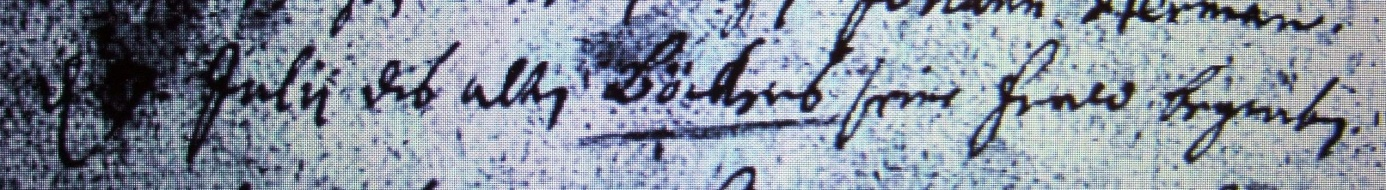 Johann Herman.
d 9. Julij des alten Böckers seine Fraw begraben.